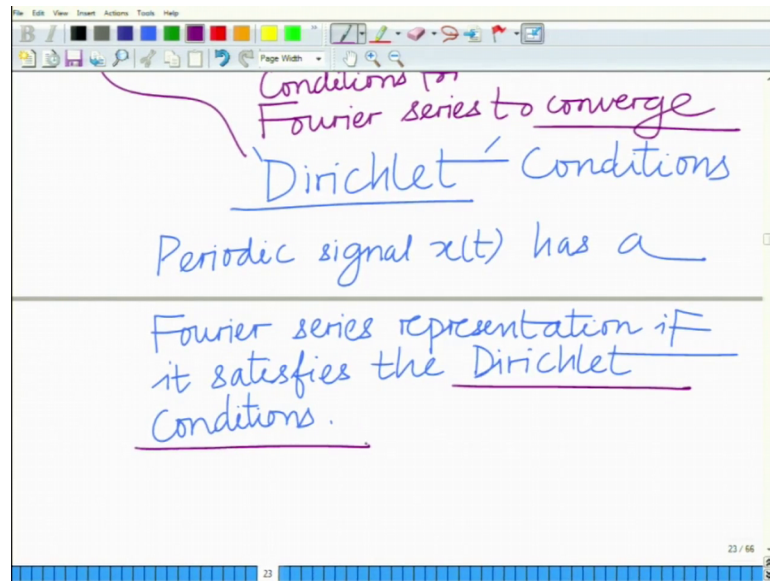 File Edit View Insert Actions Tools Help
B I
Page Width
Conditions for
Fourier series to converge
'Dirichlet' Conditions
Periodic signal x(t) has a
Fourier series representation if
it satisfies the Dirichlet
Conditions.
23 / 66
23